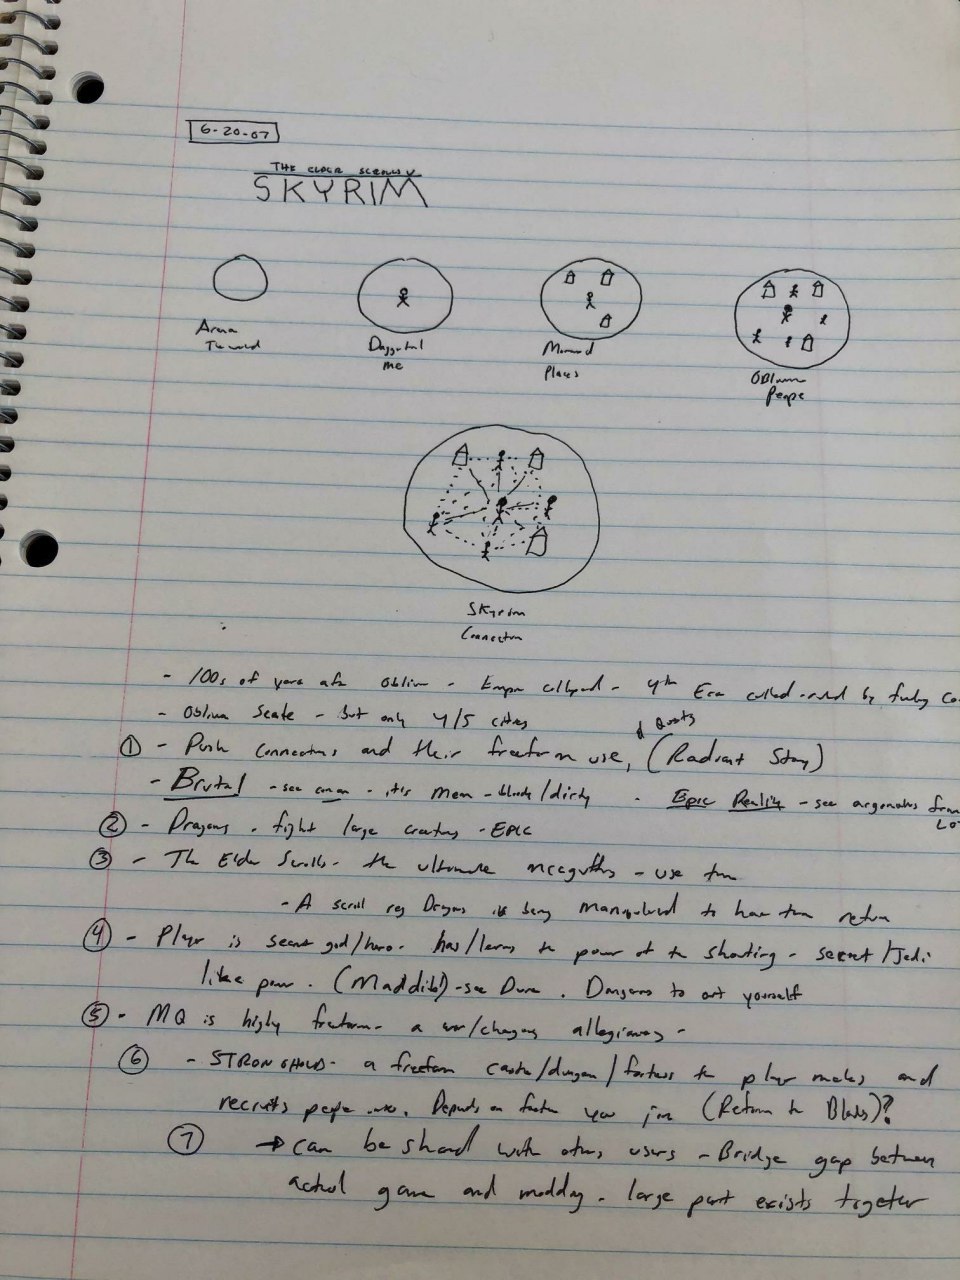 6-20-07
THE ELDER SCROLLS V
SKYRIM
Arena
The world
Daggerfall
me
Morrowind
Places
Oblivion
People
Skyrim
Connection
- 100s of years after Oblivion - Empire collapsed - 4th Era called - ruled by
- Oblivion Scale - but only 4/5 cities
& Quests
① - Push connections and their freeform use, (Radiant Story)
- Brutal - see conan - it's mean - bloody/dirty - Epic Reality - see argonaths from
② - Dragons - fight large creatures - EPIC
③ - The Elder Scrolls - the ultimate mcguffins - use them
- A scroll reg Dragons is being manipulated to have them return
④ - Player is secret god/hero - has/learns the power of the shouting - secret/Jedi
like power. (Maddib) - see Dune. Dangerous to out yourself
⑤ - MQ is highly freeform - a war/changing allegiances -
⑥ - STRONGHOLDS - a freeform castle/dungeon/fortress the player makes and
recruits people into. Depends on faction you join (Return to Blades)?
⑦ → can be shared with other users - Bridge gap between
actual game and modding - large part exists together